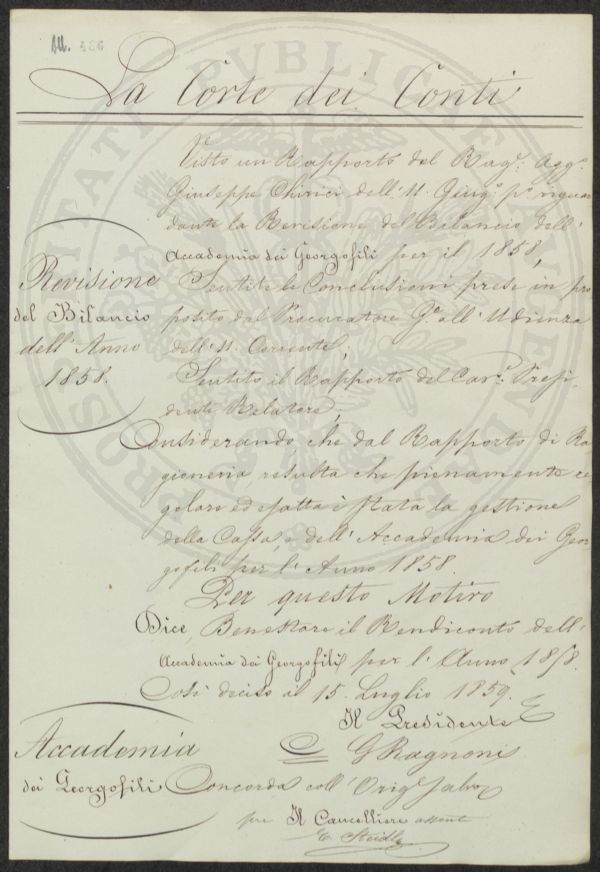 All. 486
La Corte dei Conti
Visto un Rapporto del Rag.e Agg.o
Giuseppe Chirici dell'11. Giug.o p.o riguar
dante la Revisione del Bilancio dell'
Accademia dei Georgofili per il 1858,
Sentite le Conclusioni prese in pro
posito dal Procuratore G.e all'Udienza
dell'11. Corrente,
Sentito il Rapporto del Cav.e Presi
dente Relatore,
Considerando, che dal Rapporto di Ra
gioneria resulta che pienamente re
golare ed esatta è stata la gestione
della Cassa, e dell'Accademia dei Geor
gofili per l'Anno 1858.
Per questo Motivo
Dice Benestare il Rendiconto dell'
Accademia dei Georgofili per l'Anno 1858.
Così deciso il 15. Luglio 1859.
Il Presidente
G Ragnoni
Concorda coll'Orig.e salvo
per Il Cancelliere assente
Revisione
del Bilancio
dell'Anno
1858.
Accademia
dei Georgofili
PROSPERITATI PUBLICAE AUGENDAE